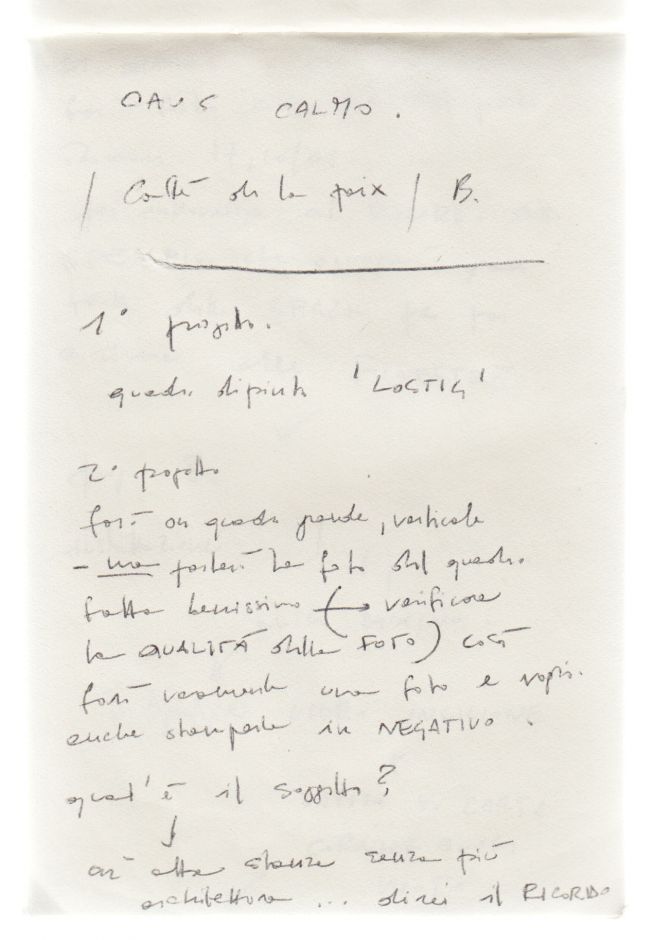 CAOS CALMO.
/ Caffè de la paix / B.
1° progetto.
quadro dipinto 'LOSTIG'
2° progetto
farò un quadro grande, verticale
- ma porterò la foto del quadro
fatta benissimo (→ verificare
la QUALITÀ della FOTO) così
farò veramente una foto e
anche stamparla in NEGATIVO.
qual'è il soggetto?
↓
un'altra stanza senza più
architettura ... direi il RICORDO